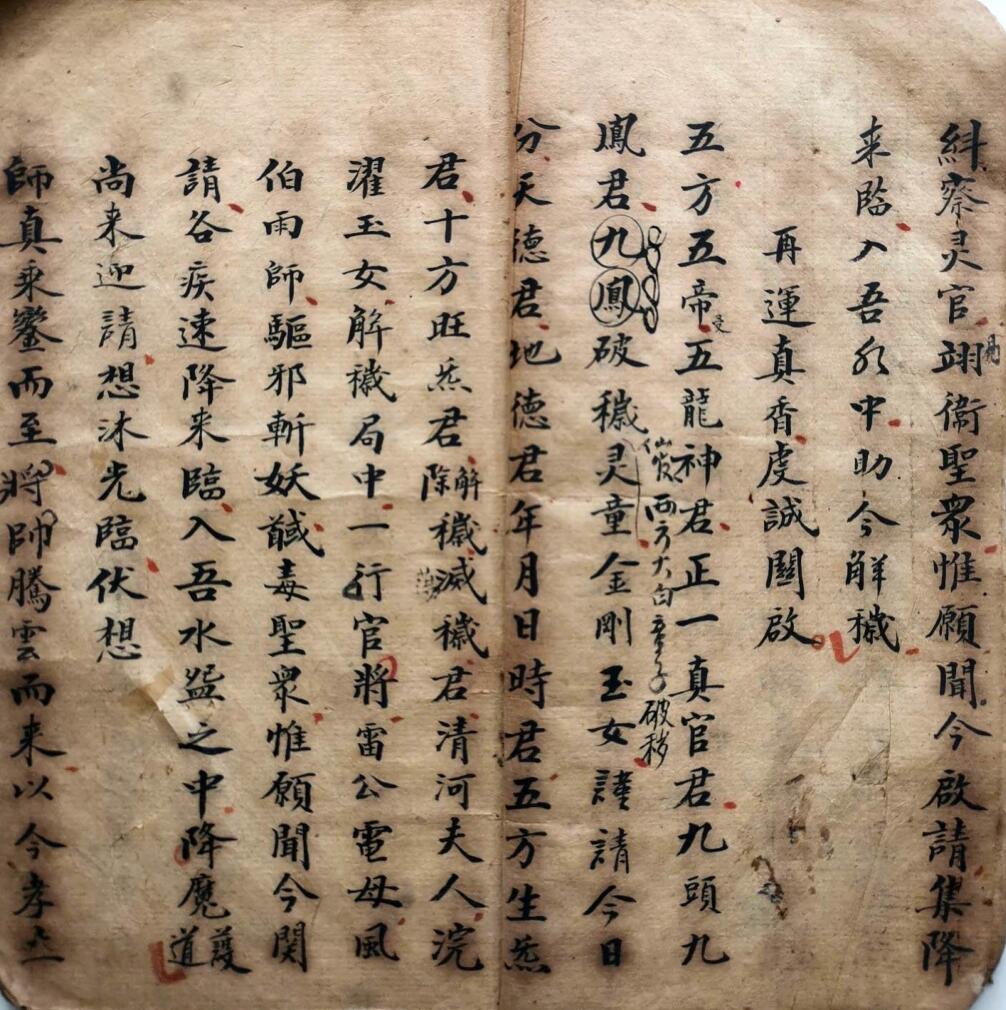 糾察灵官翊衞聖眾惟願聞今啟請集降
来臨入吾水中助今解穢
再運真香虔誠關啟
五方五帝五龍神君正一真官君九頭九
西方太白童子破秽
鳳君九鳳破穢灵童金剛玉女謹請今日
分天德君地德君年月日時君五方生炁
君十方旺炁君解除穢滅穢君清河夫人浣
濯玉女解穢局中一行官將雷公電母風
伯雨師驅邪斬妖馘毒聖眾惟願聞今関
請各疾速降来臨入吾水盆之中降魔護道
尚来迎請想沐光臨伏想
師真乘鑾而至將帥騰雲而来以今孝